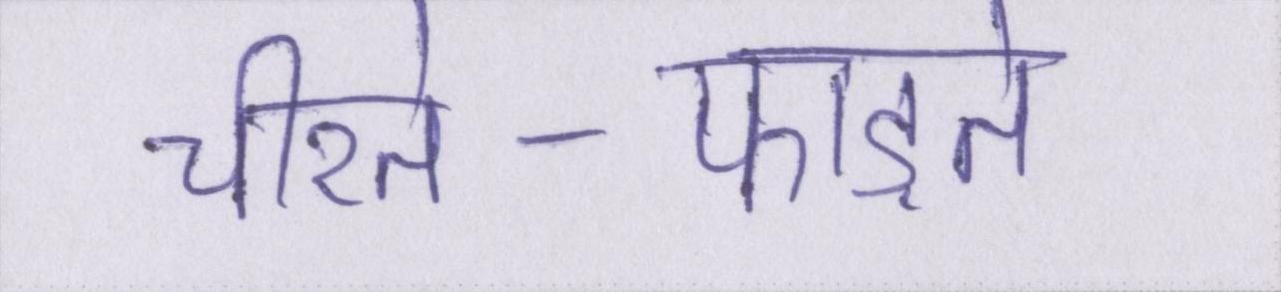 चीरते - फाड़ते